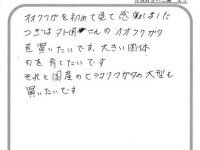 オオクワガタを初めて見て感動しました
つぎは外国さんのオオクワガタ
を買いたいです、大きい固体
のを育てたいです
それと国産のヒラタクワガタの大型も
買いたいです